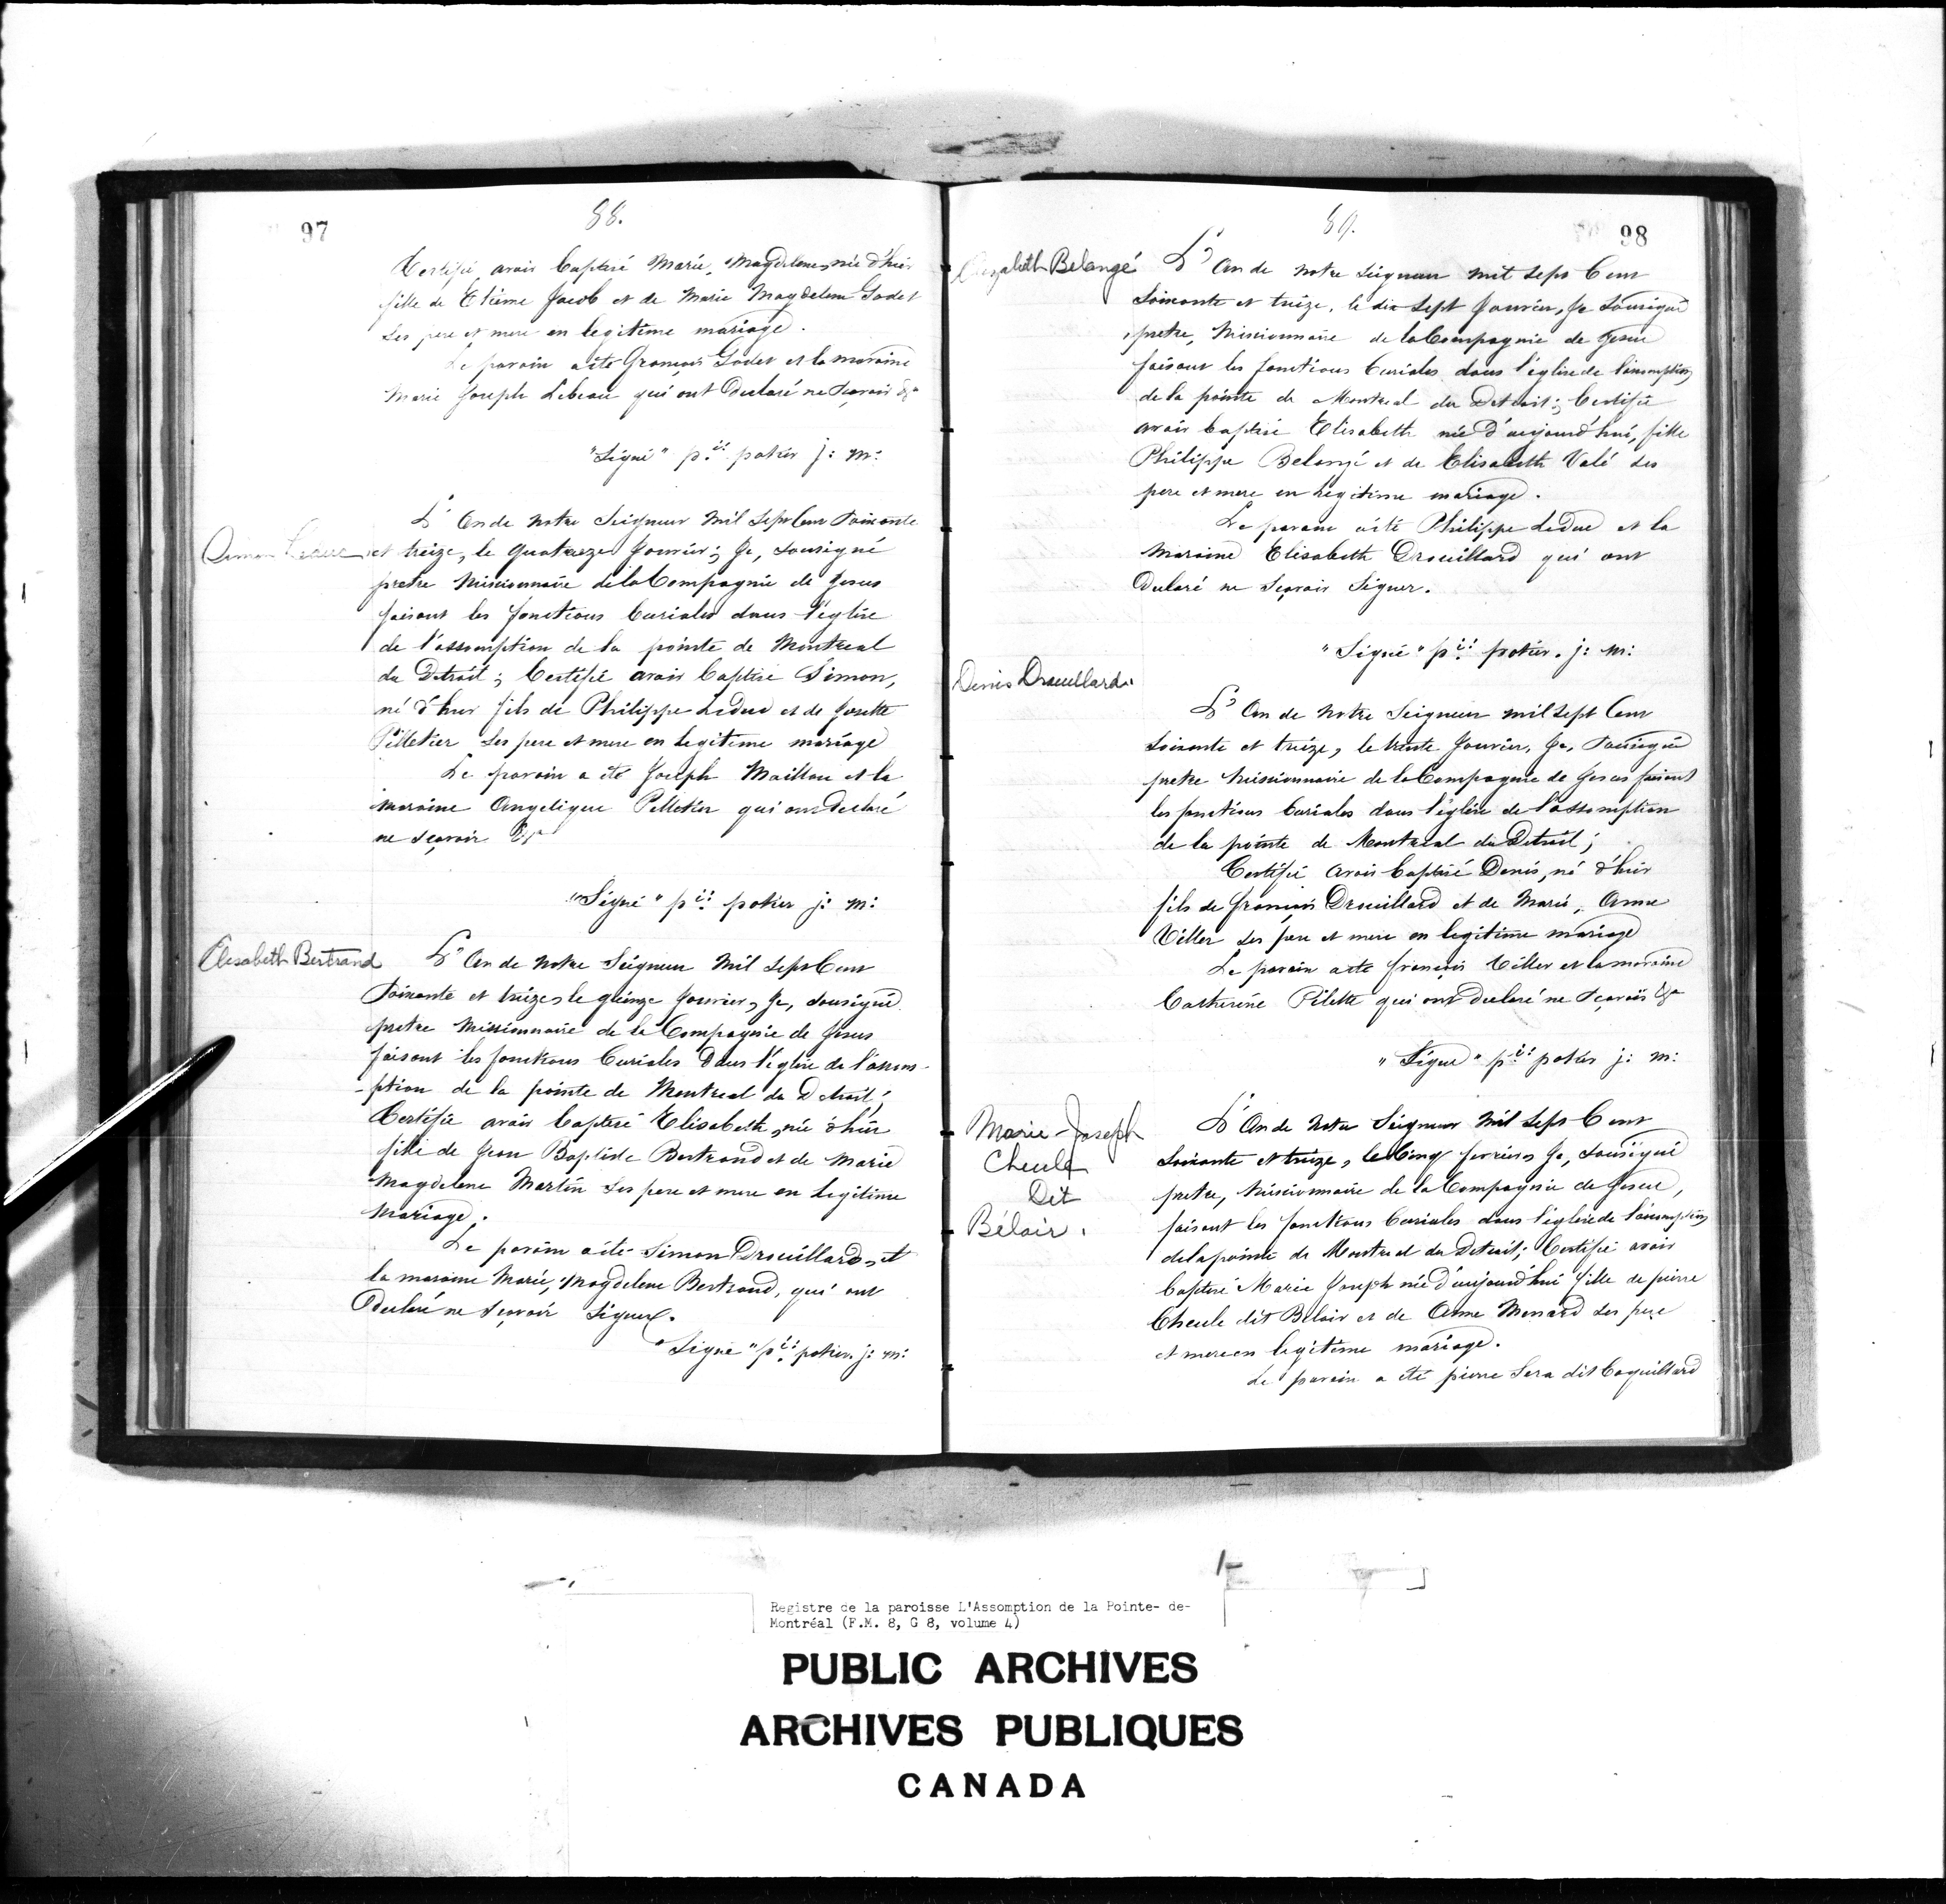 97
88.
Certifie avoir baptisé Marie, Magdelene, née d'hier
fille de Etiéme Jacob et de Marie Magdelene Godet
ses pere et mere en legitime mariage.
Le parain a été François Godet et la maraine
Marie Joseph Lebeau qui ont declaré ne sçavoir &a
"Signé" p.re potier j: m:
Simon Leduc
L'An de notre Seigneur mil sept Cent soixante
et treize, le quatorze janvier; Je, sousigné
pretre Missionnaire de la Compagnie de Jesus
faisant les fonctions Curiales dans l'église
de l'assomption de la pointe de Montreal
du Detroit; Certifie avoir baptisé Simon,
né d'hier fils de Philippe Leduc et de Josette
Pilletier ses pere et mere en legitime mariage
Le parain a été Joseph Maillou et la
maraine Angelique Pelletier qui ont declaré
ne sçavoir &a
"Signé" p.re potier j: m:
Elisabeth Bertrand
L'An de notre Seigneur Mil sept Cent
Soixante et treize, le quinze janvier, Je, sousigné
pretre Missionnaire de la Compagnie de Jesus
faisant les fonctions Curiales dans l'église de l'assom-
-ption de la pointe de Montreal du Detroit;
Certifie avoir baptisé Elisabeth, née d'hier
fille de Jean Baptiste Bertrand et de Marie
Magdelene Martin ses pere et mere en legitime
Mariage.
Le parain a été Simon Drouillard, et
la maraine Marie, Magdelene Bertrand, qui ont
declaré ne sçavoir Signer.
"Signé" p.re potier j: m:
89.
98
Elizabeth Belangé
L'An de notre Seigneur mil sept Cent
Soixante et treize, le dix sept Janvier, Je Sousigné
pretre, Missionnaire de la Compagnie de Jesus
faisant les fonctions Curiales dans l'église de l'assomption
de la pointe de Montreal du Detroit; Certifie
avoir baptisé Elisabeth née d'aujourd'hui, fille
Philippe Belangé et de Elisabeth Valé ses
pere et mere en legitime mariage.
Le parain a été Philippe Leduc et la
Maraine Elisabeth Drouillard qui ont
Declaré ne Sçavoir Signer.
"Signé" p.re potier. j: m:
Denis Drouillard.
L'An de notre Seigneur mil sept Cent
soixante et treize, le trente Janvier, Je, Sousigné
pretre Missionnaire de la Compagnie de Jesus faisant
les fonctions Curiales dans l'église de l'assomption
de la pointe de Montreal du Detroit;
Certifie avoir baptisé Denis, né d'hier
fils de françois Drouillard et de Marie, Anne
Viller ses pere et mere en legitime mariage
Le parain a été françois Viller et la maraine
Catherine Pilette qui ont declaré ne sçavoir &a
"Signé" p.re potier j: m:
Marie-Joseph
Cheule
Dit
Bélair.
L'An de notre Seigneur Mil sept Cent
Soixante et treize, le Cinq fevrier, Je, Sousigné
pretre, Missionnaire de la Compagnie de Jesus,
faisant les fonctions Curiales dans l'église de l'assomption
de la pointe de Montreal du Detroit; Certifie avoir
baptisé Marie Joseph née d'aujourd'hui fille de pierre
Cheule dit Belair et de Anne Menard ses pere
et mere en legitime mariage.
Le parain a été pierre Sera dit Coquillard
Registre de la paroisse L'Assomption de la Pointe- de-
Montréal (F.M. 8, G 8, volume 4)
PUBLIC ARCHIVES
ARCHIVES PUBLIQUES
CANADA